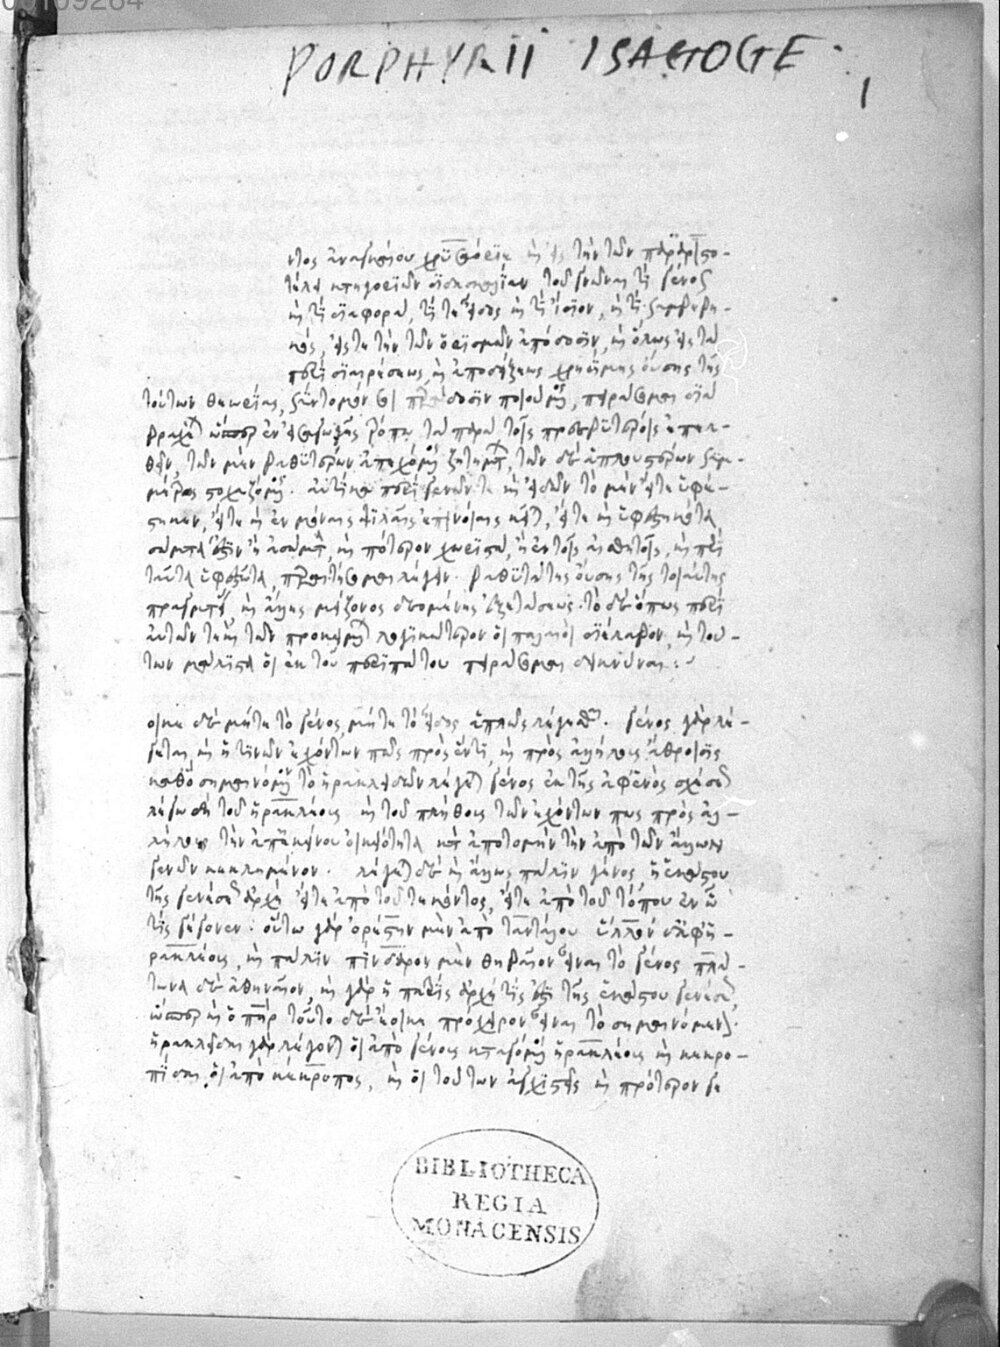 00109264
PORPHYRII ISAGOGE
1
ντος ἀναγκαίου χρυσαόριε καὶ εἰς τὴν τῶν παρὰ ἀριστο-
τέλει κατηγοριῶν διδασκαλίαν τοῦ γνῶναι τί γένος
καὶ τί διαφορά, τί τε εἶδος καὶ τί ἴδιον, καὶ τί συμβεβη-
κός, εἴς τε τὴν τῶν ὁρισμῶν ἀπόδοσιν, καὶ ὅλως εἰς τὰ
περὶ διαιρέσεως καὶ ἀποδείξεως χρησίμης οὔσης τῆς
τούτων θεωρίας, σύντομόν σοι παράδοσιν ποιούμενος, πειράσομαι διὰ
βραχέων ὥσπερ ἐν εἰσαγωγῆς τρόπῳ τὰ παρὰ τοῖς πρεσβυτέροις ἐπελ-
θεῖν, τῶν μὲν βαθυτέρων ἀπεχόμενος ζητημάτων, τῶν δὲ ἁπλουστέρων συμ-
μέτρως στοχαζόμενος. αὐτίκα περὶ γενῶν τε καὶ εἰδῶν τὸ μὲν εἴτε ὑφέ-
στηκεν, εἴτε καὶ ἐν μόναις ψιλαῖς ἐπινοίαις κεῖται, εἴτε καὶ ὑφεστηκότα
σώματά ἐστιν ἢ ἀσώματα, καὶ πότερον χωριστὰ, ἢ ἐν τοῖς αἰσθητοῖς, καὶ περὶ
ταῦτα ὑφεστῶτα, παραιτήσομαι λέγειν. βαθυτάτης οὔσης τῆς τοιαύτης
πραγματείας, καὶ ἄλλης μείζονος δεομένης ἐξετάσεως. τὸ δὲ ὅπως περὶ
αὐτῶν καὶ τῶν προκειμένων λογικώτερον οἱ παλαιοὶ διέλαβον, καὶ τού-
των μάλιστα οἱ ἐκ τοῦ περιπάτου πειράσομαι δεικνύναι :
οικε δὲ μήτε τὸ γένος, μήτε τὸ εἶδος ἁπλῶς λέγεσθαι. γένος γὰρ λέ-
γεται, καὶ ἡ τινῶν ἐχόντων πως πρὸς ἕν τι, καὶ πρὸς ἀλλήλους ἄθροισις
καθ' ὃ σημαινόμενον τὸ ἡρακλειδῶν λέγεται γένος ἐκ τῆς ἀφ' ἑνὸς σχέσεως
λέγω δὴ τοῦ ἡρακλέους καὶ τοῦ πλήθους τῶν ἐχόντων πως πρὸς ἀλ-
λήλους τὴν ἀπ' ἐκείνου οἰκειότητα κατὰ ἀποτομὴν τὴν ἀπὸ τῶν ἄλλων
γενῶν κεκλημένον. λέγεται δὲ καὶ ἄλλως πάλιν γένος ἡ ἑκάστου
τῆς γενέσεως ἀρχὴ εἴτε ἀπὸ τοῦ τεκόντος, εἴτε ἀπὸ τοῦ τόπου ἐν ᾧ
τις γέγονεν. οὕτω γὰρ ὀρέστην μὲν ἀπὸ ταντάλου ὕλλον δὲ ἀφ' ἡ-
ρακλέους, καὶ πάλιν πίνδαρον μὲν θηβαῖον εἶναι τὸ γένος πλά-
τωνα δὲ ἀθηναῖον, καὶ γὰρ ἡ πατρὶς ἀρχή τίς ἐστι τῆς ἑκάστου γενέσεως,
ὥσπερ καὶ ὁ πατήρ. τοῦτο δὲ ἔοικε πρόχειρον εἶναι τὸ σημαινόμενον.
ἡρακλεῖδαι γὰρ λέγονται οἱ ἀπὸ γένους κατάγοντες ἡρακλέους καὶ κεκρο-
πίδαι οἱ ἀπὸ κέκροπος, καὶ οἱ τούτων ἀγχιστεῖς καὶ πρότερον γε
BIBLIOTHECA
REGIA
MONACENSIS